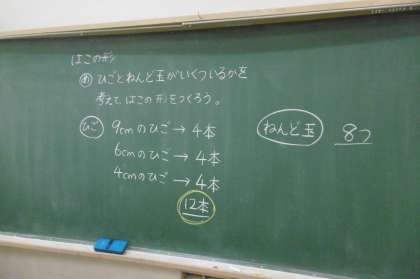 はこの形
め ひごとねんど玉がいくついるかを
考えて はこの形をつくろう。
ひご 9cmのひご→4本
6cmのひご→4本
4cmのひご→4本
12本
ねんど玉 8つ